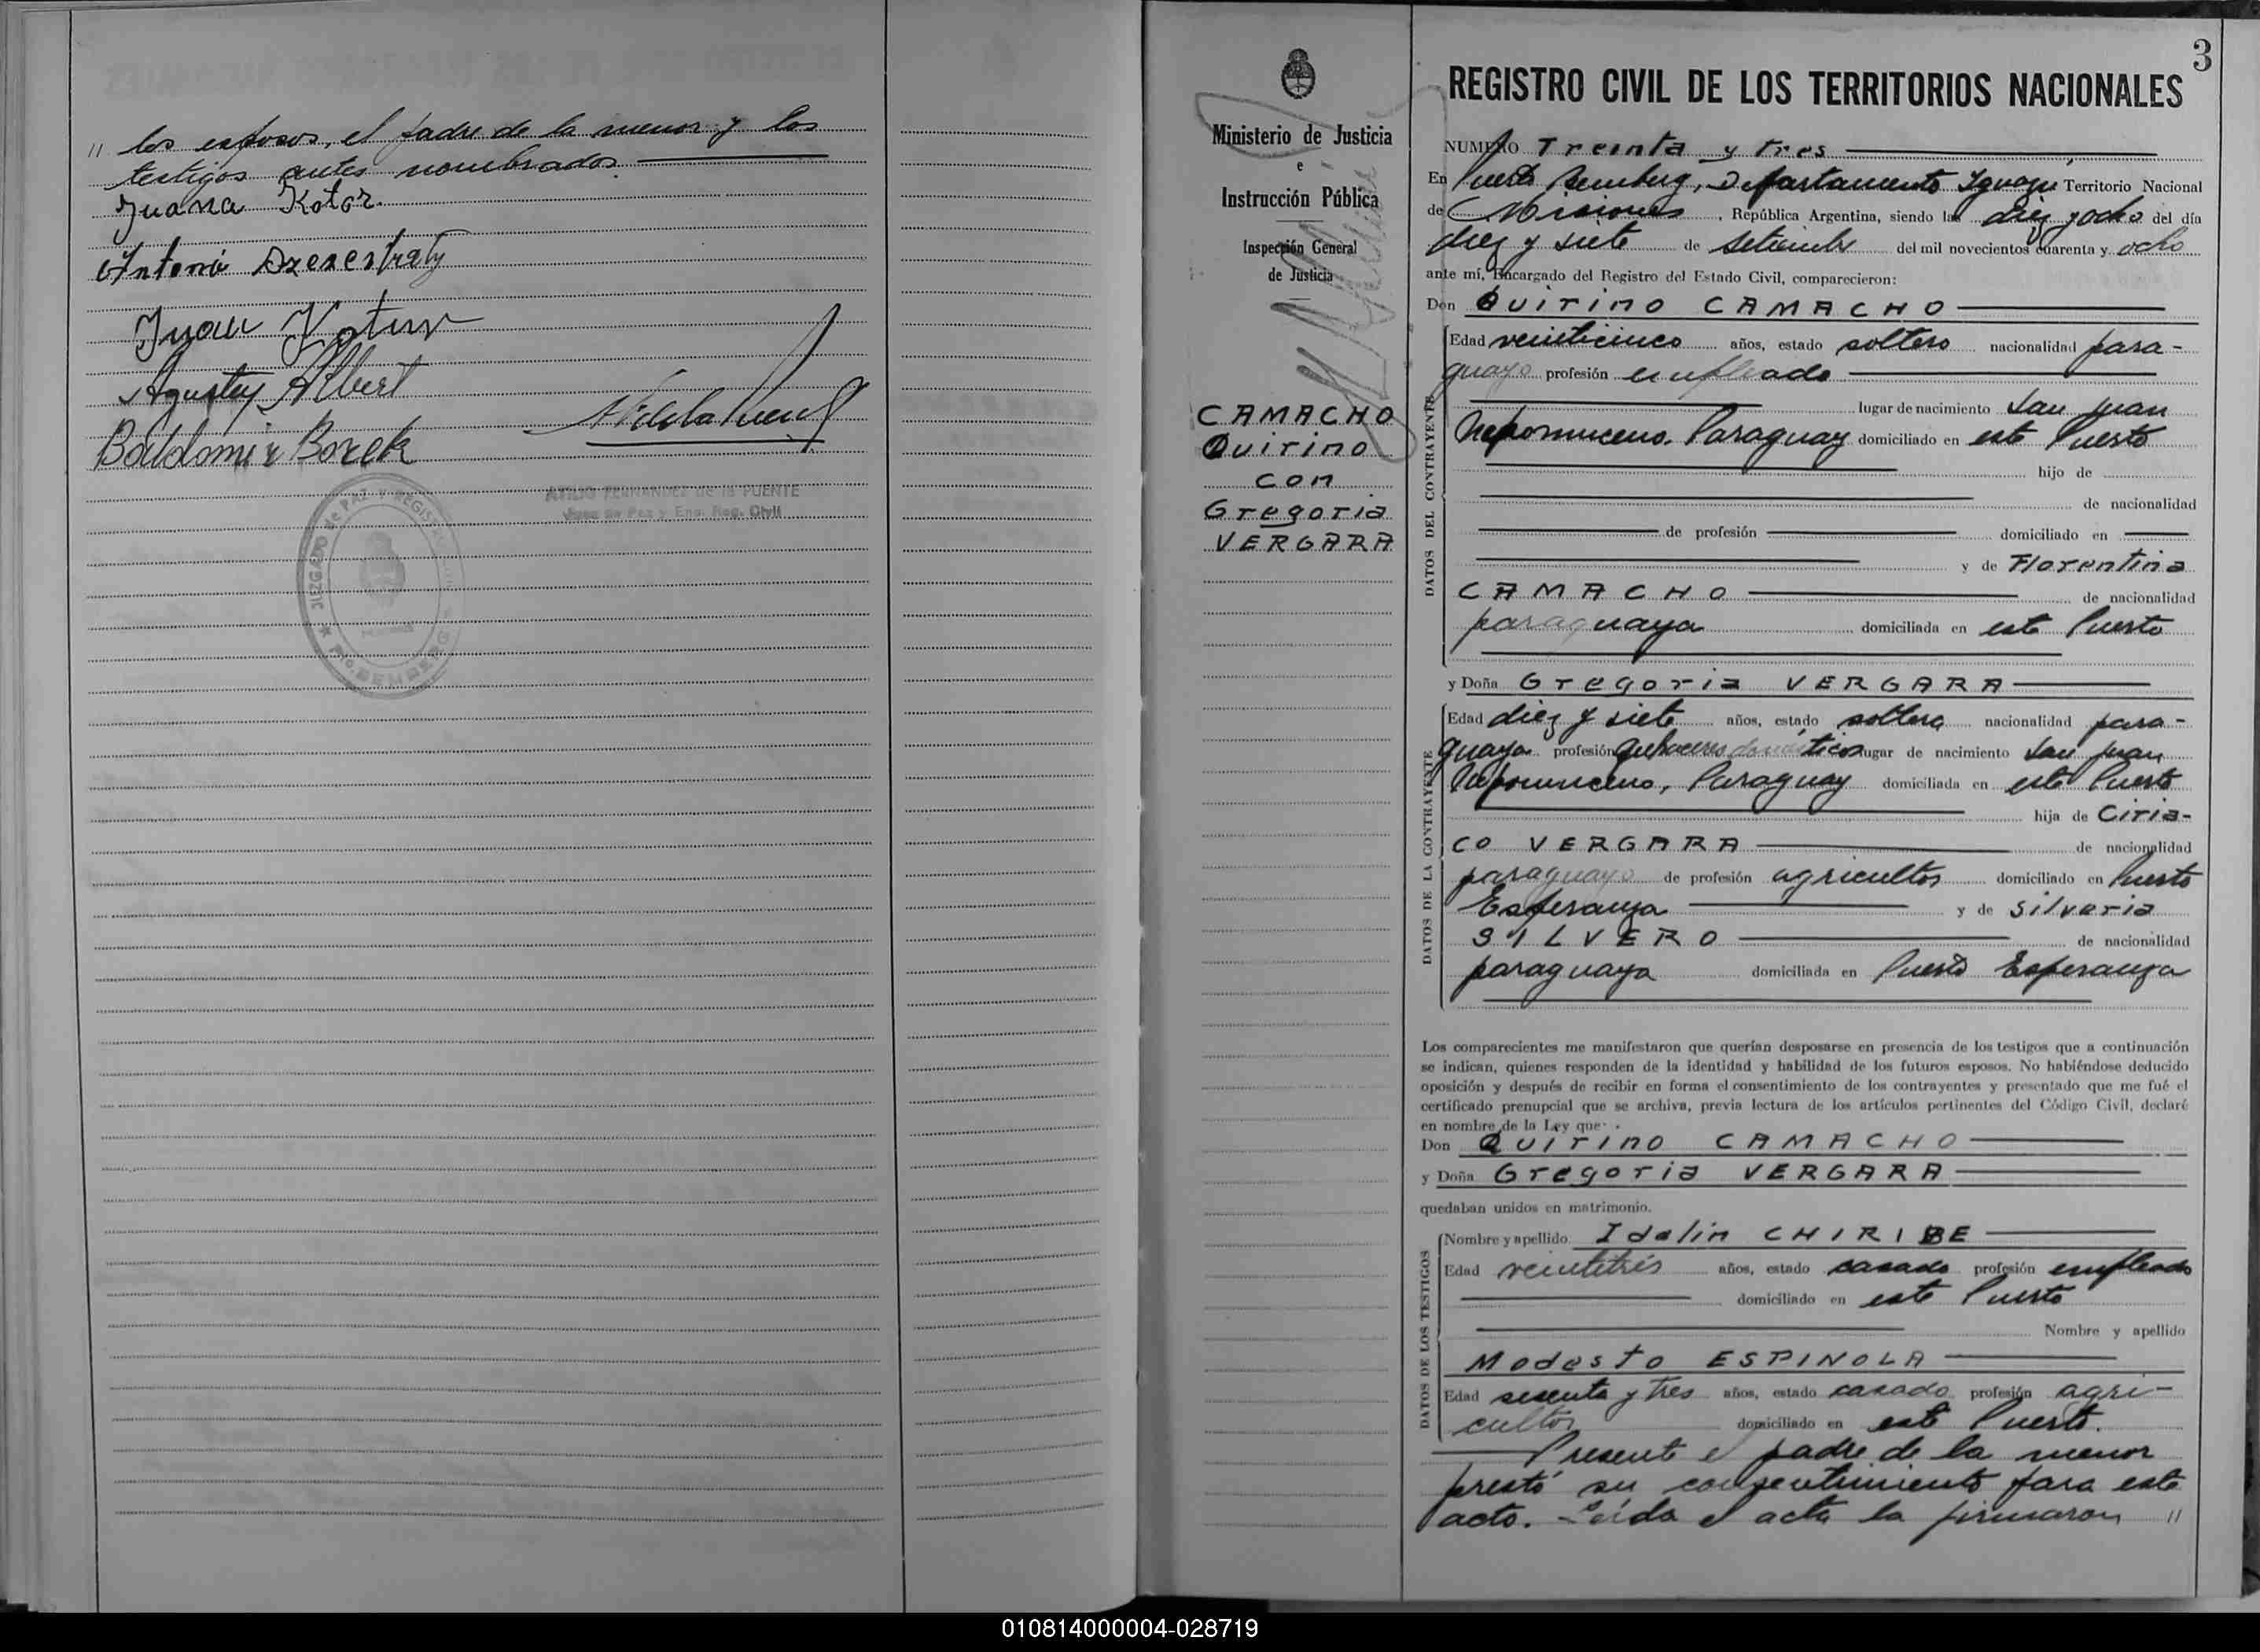 " los esposos, el padre de la menor y los
testigos antes nombrados.
Juana Kotor.
Antonio
Juan
Agustey Albert
Boudomir Borek
ATILIO FERNANDEZ de la PUENTE
Juez de Paz y Enc. Reg. Civil
JUZGADO de PAZ Y REGISTRO CIVIL
Pto. BEMBERG
3
Ministerio de Justicia
e
Instrucción Pública
Inspección General
de Justicia
CAMACHO
Quirino
con
Gregoria
VERGARA
REGISTRO CIVIL DE LOS TERRITORIOS NACIONALES
NUMERO Treinta y tres
En Puerto Bemberg, Departamento Iguazú Territorio Nacional
de Misiones, República Argentina, siendo las diez y ocho del día
diez y siete de setiembre del mil novecientos cuarenta y ocho
ante mí, Encargado del Registro del Estado Civil, comparecieron:
Don Quirino CAMACHO
DATOS DEL CONTRAYENTE
Edad veinticinco años, estado soltero nacionalidad para-
guayo profesión empleado
lugar de nacimiento San Juan
Nepomuceno. Paraguay domiciliado en este Puerto
hijo de
de nacionalidad
de profesión domiciliado en
y de Florentina
CAMACHO de nacionalidad
paraguaya domiciliada en este Puerto
y Doña Gregoria VERGARA
DATOS DE LA CONTRAYENTE
Edad diez y siete años, estado soltera nacionalidad para-
guaya profesión quehaceres domésticos lugar de nacimiento San Juan
Nepomuceno, Paraguay domiciliada en este Puerto
hija de Ciria-
co VERGARA de nacionalidad
paraguayo de profesión agricultor domiciliado en Puerto
Esperanza y de Silveria
SILVERO de nacionalidad
paraguaya domiciliada en Puerto Esperanza
Los comparecientes me manifestaron que querían desposarse en presencia de los testigos que a continuación
se indican, quienes responden de la identidad y habilidad de los futuros esposos. No habiéndose deducido
oposición y después de recibir en forma el consentimiento de los contrayentes y presentado que me fué el
certificado prenupcial que se archiva, previa lectura de los artículos pertinentes del Código Civil, declaré
en nombre de la Ley que:
Don Quirino CAMACHO
y Doña Gregoria VERGARA
quedaban unidos en matrimonio.
DATOS DE LOS TESTIGOS
Nombre y apellido Idalin CHIRIBE
Edad veintitrés años, estado casado profesión empleado
domiciliado en este Puerto
Nombre y apellido
Modesto ESPINOLA
Edad sesenta y tres años, estado casado profesión agri-
cultor domiciliado en este Puerto.
Presente el padre de la menor
prestó su consentimiento para este
acto. Leída el acta la firmaron "
010814000004-028719